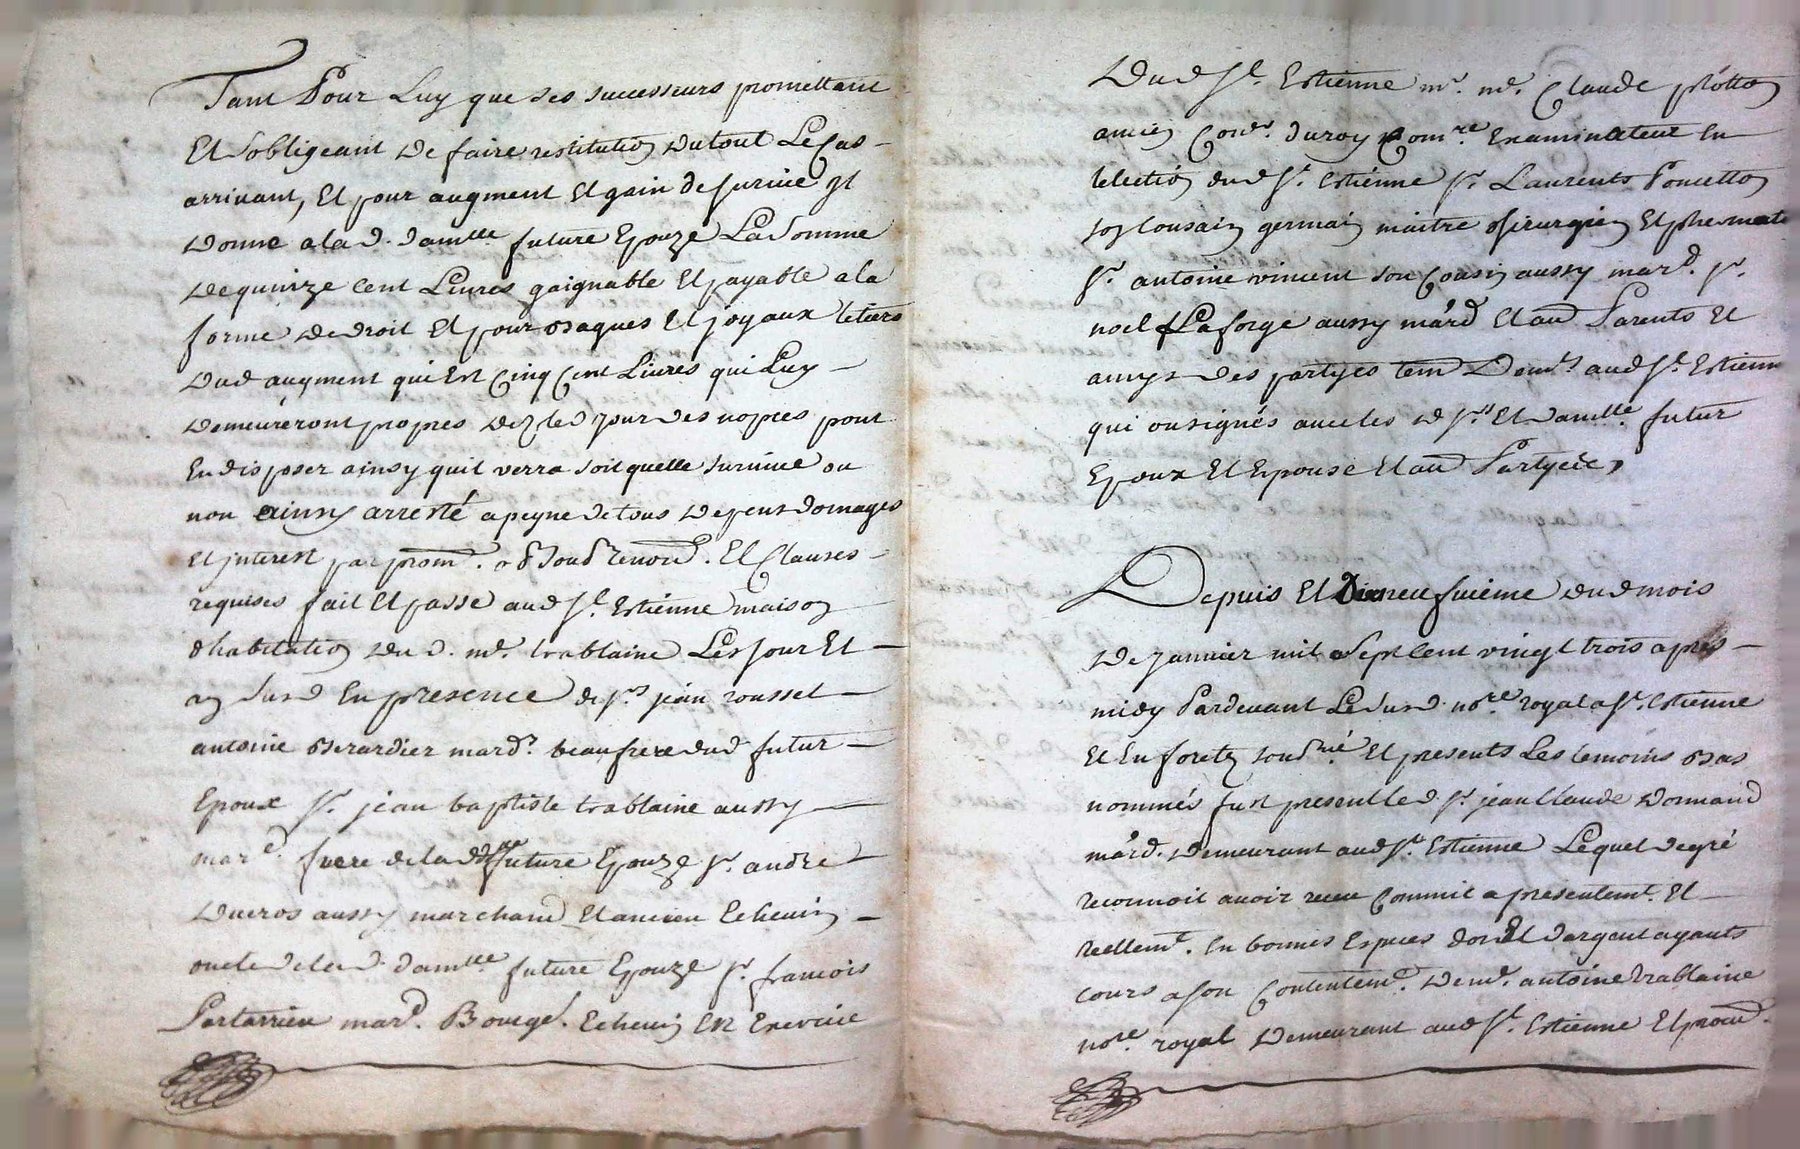 Tant Pour Luy que ses successeurs promettant
Et Sobligeant de faire restitution du tout Le Cas
arrivant, Et pour augment Et gain de survie yl
donne a la d. damlle future Epouze La Somme
de quinze Cent Livres gaignable Et payable a la
forme de droit Et pour Bagues Et joyaux
dud augment qui Est Cinq Cent Livres qui Luy
demeureront propres dez led jour des nopces pour
En disposer ainsy quil verra soit quelle survive ou
non ainsy arresté a peyne de tous depens domages
Et interest par prom. renon. Et Clauses
requises fait Et passé aud St. Estienne maison
d'habitation du d. me. trablaine Les jour Et
an Susd En presence de srs jean rousset
antoine Berardier mard. beaufrere dud futur
Epoux sr. jean baptiste trablaine aussy
mard. frere de la d. future Epouze sr. andré
ducros aussy marchand Et ancien Echevin
oncle de la d. damlle future Epouze sr. francois
mard. Bourge. Echevin En Exercice
Dud St. Estienne mr. me. Claude
ancien Coner. du roy Comre. Examinateur En
lelection dud St. Estienne sr. Laurents Poncetton
son Cousain germain maitre chirurgien Et
sr. antoine vincent son Cousin aussy mard. sr.
noel Laforge aussy mard Et au Parents Et
amys des partyes tem Demts aud St. Estienne
qui on signés avec les d srs Et damlle. futur
Epoux Et Epouse Et au Partyes,
Depuis Et Dixneufuieme dud mois
de janvier mil sept cent vingt trois apres
midy Pardevant Le Susd. nore. royal a St. Estienne
Et En foretz sousné Et presents Les temoins Bas
nommés fust present led sr. jean Claude dormand
mard. demeurant aud St. Estienne Lequel de gré
reconnoit avoir receu Comme a presentemt. Et
reellemt. En bonnes Especes dor Et dargent ayants
cours a son Contentemt. de me. antoine trablaine
nore. royal demeurant aud St. Estienne Et